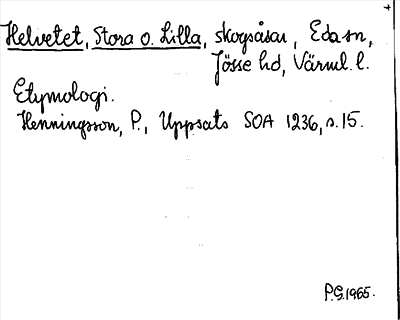 Helvetet, Stora o. Lilla, skogsåsar, Eda sn,
Jösse hd, Värml. l.
Etymologi.
Henningsson, P., Uppsats SOA 1236, s. 15.
P.G. 1965.